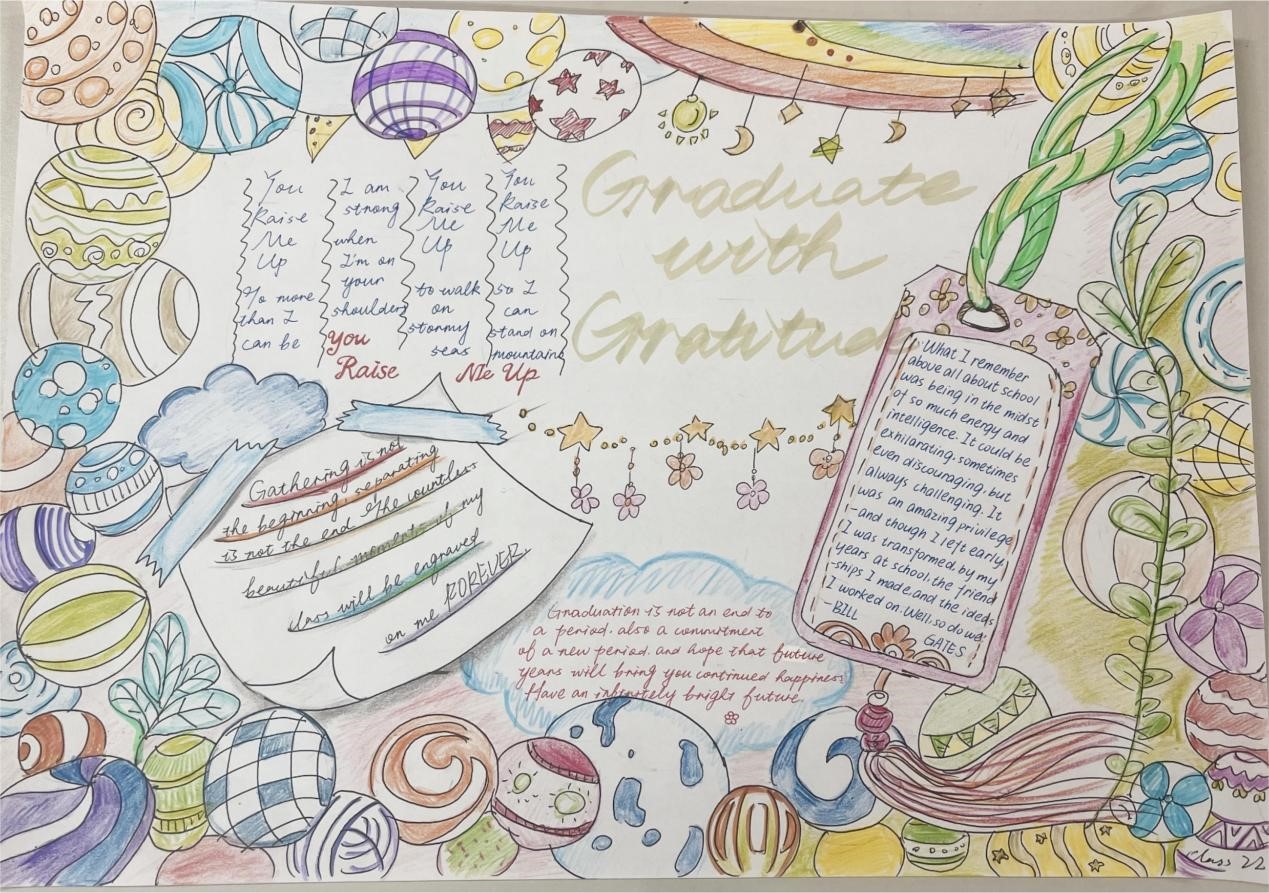 Graduate
with
Gratitude
You
Raise
Me
Up
To more
than I
can be
I am
strong
when
I'm on
your
shoulders
You
Raise
Me
Up
to walk
on
stormy
seas
You
Raise
Me
Up
so I
can
stand on
mountains
You
Raise Me Up
Gathering is not
the beginning, separating
is not the end. The countless
beautiful moments of my
class will be engraved
on me FOREVER
Graduation is not an end to
a period. also a commitment
of a new period. and hope that future
years will bring you continued happiness
Have an infinitely bright future.
What I remember
above all about school
was being in the midst
of so much energy and
intelligence. It could be
exhilarating, sometimes
even discouraging, but
always challenging. It
was an amazing privilege
-and though I left early,
I was transformed by my
years at school, the friend
-ships I made, and the ideas
I worked on. Well, so do we.
-BILL
GATES
Class 22